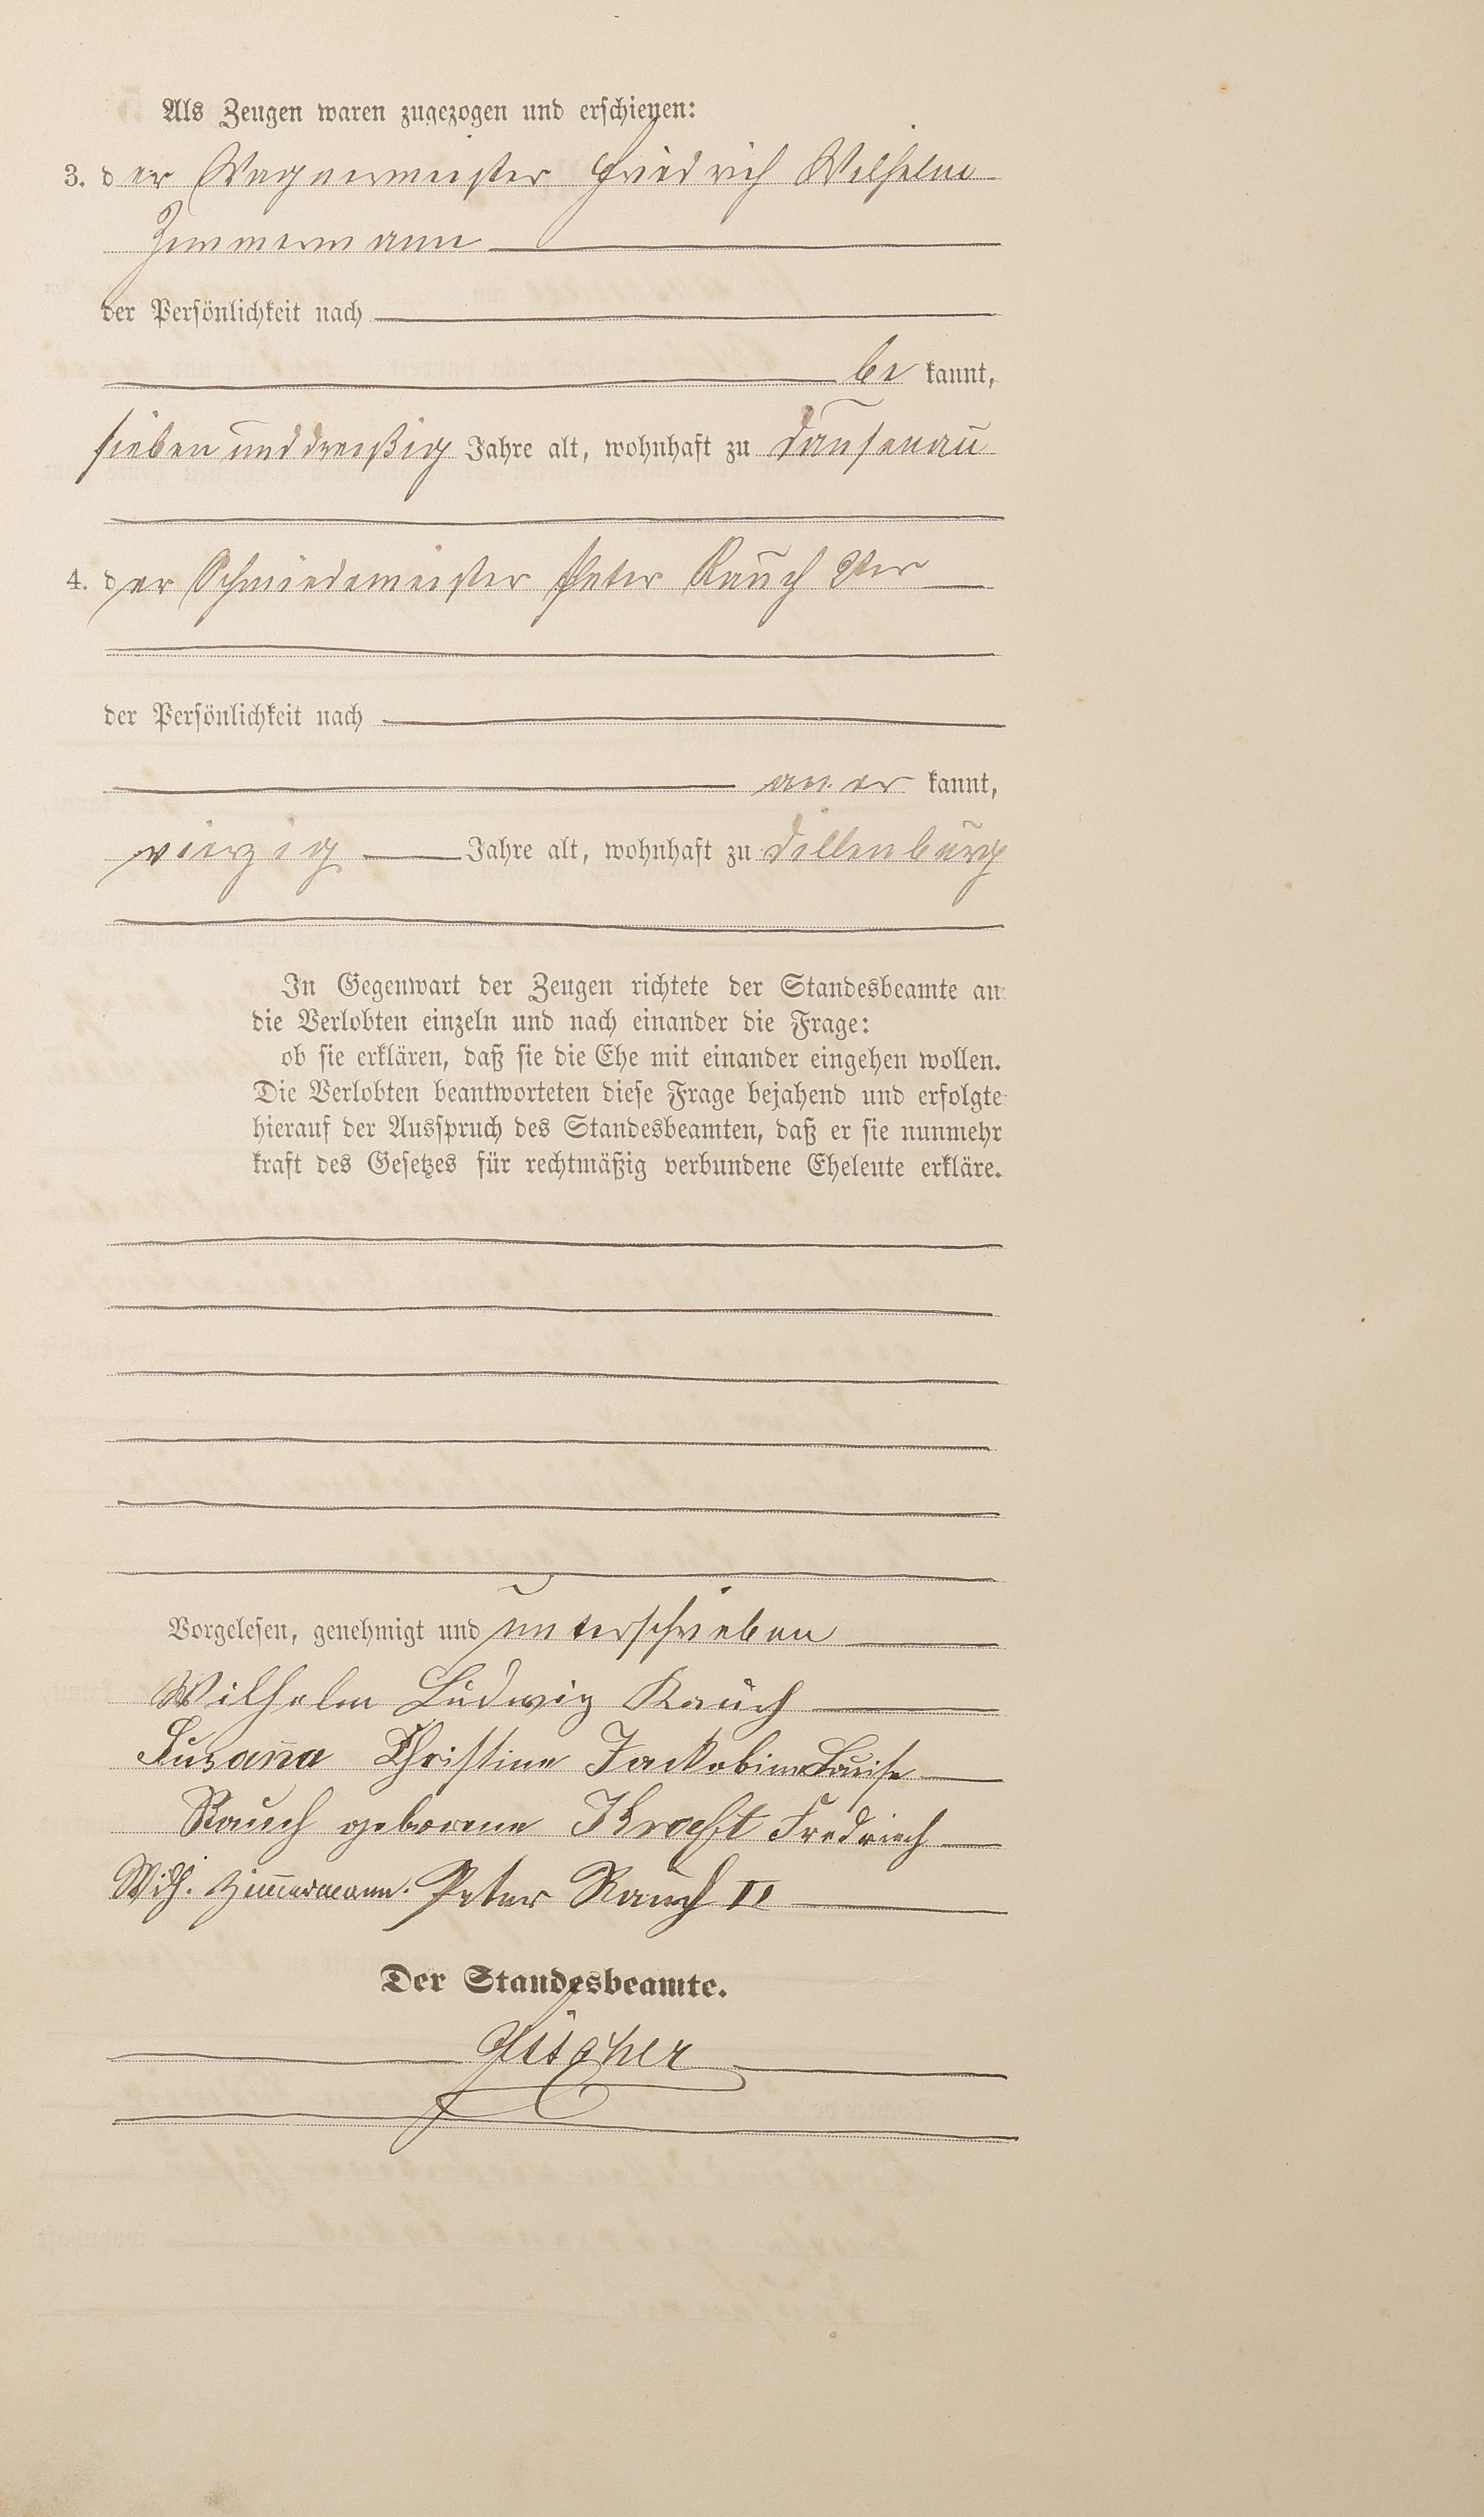 Als Zeugen waren zugezogen und erschienen:
3. der Wagnermeister Friedrich Wilhelm
Zimmermann
der Persönlichkeit nach
be kannt,
sieben und dreißig Jahre alt, wohnhaft zu Dausenau
4. der Schmiedemeister Peter Rauch 2ter
der Persönlichkeit nach
aner kannt,
vierzig Jahre alt, wohnhaft zu Dillenburg
In Gegenwart der Zeugen richtete der Standesbeamte an
die Verlobten einzeln und nach einander die Frage:
ob sie erklären, daß sie die Ehe mit einander eingehen wollen.
Die Verlobten beantworteten diese Frage bejahend und erfolgte
hierauf der Ausspruch des Standesbeamten, daß er sie nunmehr
kraft des Gesetzes für rechtmäßig verbundene Eheleute erkläre.
Vorgelesen, genehmigt und unterschrieben
Wilhelm Ludwig Rauch
Susana Christine Jackobine Louise
Rauch geborene Krafft Fredriech
Wilh. Zimmermann. Peter Rauch II
Der Standesbeamte.
Fischer